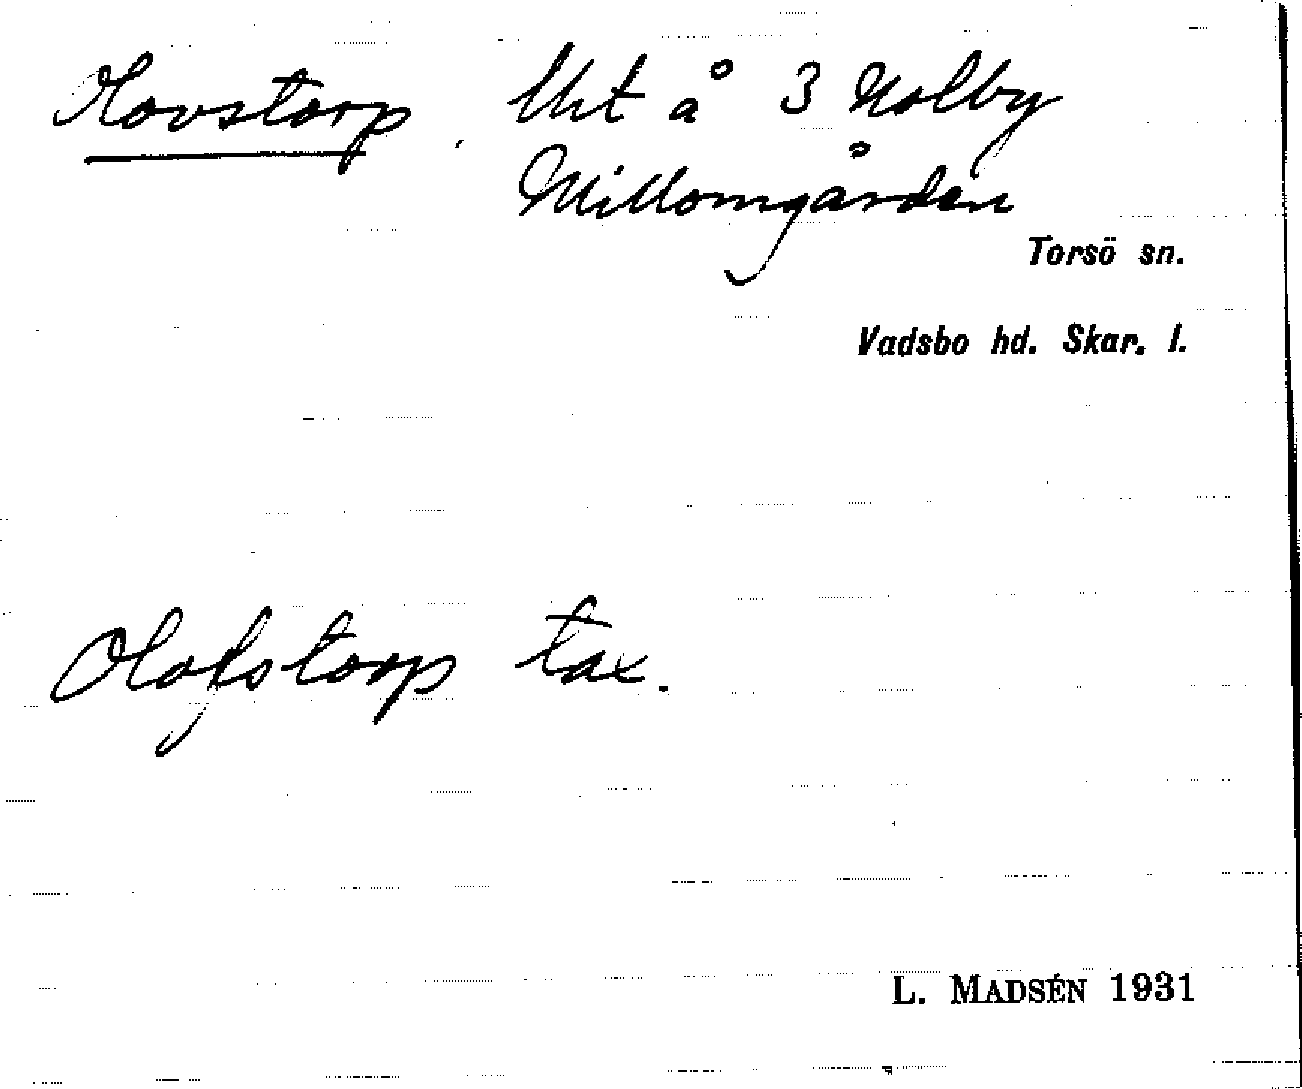 Hovstorp. Uht å 3 Nolby
Millomgården
Torsö sn.
Vadsbo hd. Skar. l.
Olofstorp tax.
L. MADSÉN 1931